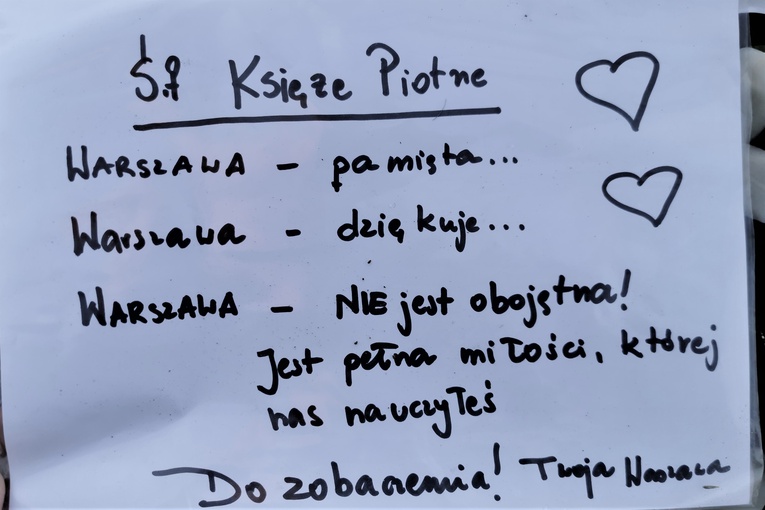 Ś.P Księże Piotrze
WARSZAWA - pamięta...
Warszawa - dziękuje...
WARSZAWA - NIE jest obojętna!
Jest pełna miłości, której
nas nauczyłeś
Do zobaczenia! Twoja Warszawa